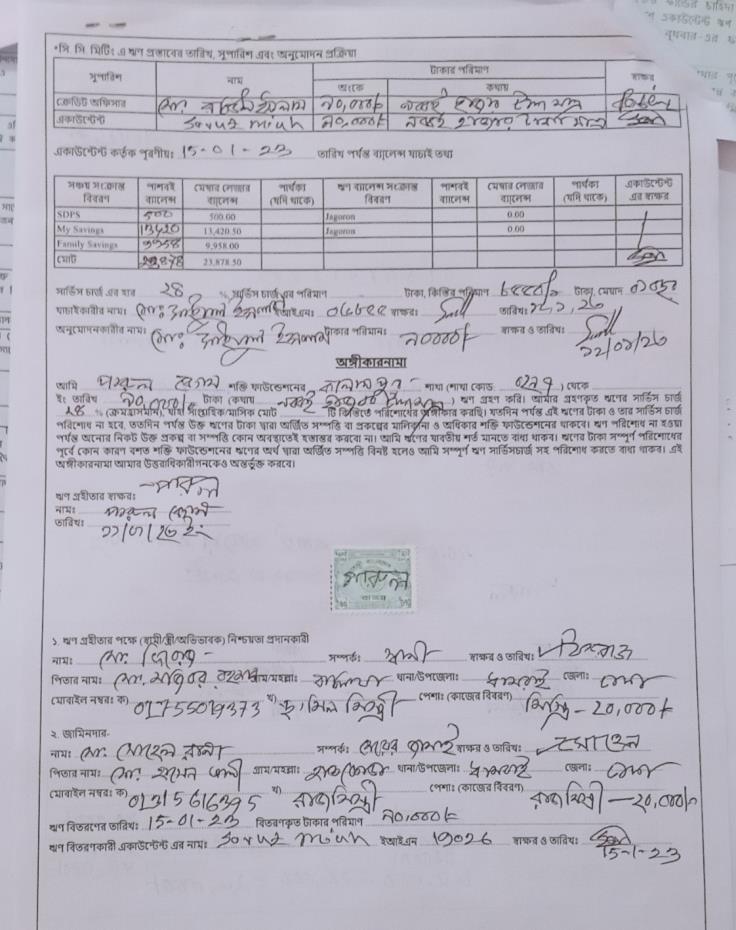 *সি. সি মিটিং এ ঋণ প্রস্তাবের তারিখ, সুপারিশ এবং অনুমোদন প্রক্রিয়া
সুপারিশ নাম টাকার পরিমাণ স্বাক্ষর
অংকে কথায়
ক্রেডিট অফিসার মো: ৯০,০০০/- নব্বই হাজার টাকা মাত্র
একাউন্টেন্ট Sovuz miah ৯০,০০০/- নব্বই হাজার টাকা মাত্র
একাউন্টেন্ট কর্তৃক পূরণীয়: 15-01-23 তারিখ পর্যন্ত ব্যালেন্স যাচাই তথ্য
সঞ্চয় সংক্রান্ত বিবরণ পাশবই ব্যালেন্স মেম্বার লেজার ব্যালেন্স পার্থক্য (যদি থাকে) ঋণ ব্যালেন্স সংক্রান্ত বিবরণ পাশবই ব্যালেন্স মেম্বার লেজার ব্যালেন্স পার্থক্য (যদি থাকে) একাউন্টেন্ট এর স্বাক্ষর
SDPS 500 500.00 Jagoron 0.00
My Savings 13420 13,420.50 Jagoron 0.00
Family Savings 9958 9,958.00
মোট 23878 23,878.50
সার্ভিস চার্জ এর হার ২৪ % সার্ভিস চার্জ এর পরিমাণ টাকা, কিস্তির পরিমাণ টাকা, মেয়াদ
যাচাইকারীর নাম: মো: ইসলাম ইআইএন: স্বাক্ষর: তারিখ:
অনুমোদনকারীর নাম: মো: ইসলাম টাকার পরিমান: ৯০০০০/- স্বাক্ষর ও তারিখ:
অঙ্গীকারনামা
আমি পারুল বেগম শক্তি ফাউন্ডেশনের শাখা (শাখা কোড ) থেকে
ইং তারিখ ৯০,০০০/- টাকা (কথায় নব্বই হাজার টাকা মাত্র ) ঋণ গ্রহণ করি। আমার গ্রহণকৃত ঋণের সার্ভিস চার্জ
২৪ % (ক্রমহ্রাসমান), যাহা সাপ্তাহিক/মাসিক মোট টি কিস্তিতে পরিশোধের অঙ্গীকার করছি। যতদিন পর্যন্ত এই ঋণের টাকা ও তার সার্ভিস চার্জ
পরিশোধ না হবে, ততদিন পর্যন্ত উক্ত ঋণের টাকা দ্বারা অর্জিত সম্পত্তি বা প্রকল্পের মালিকানা ও অধিকার শক্তি ফাউন্ডেশনের থাকবে। ঋণ পরিশোধ না হওয়া
পর্যন্ত অন্যের নিকট উক্ত প্রকল্প বা সম্পত্তি কোন অবস্থাতেই হস্তান্তর করবো না। আমি ঋণের যাবতীয় শর্ত মানতে বাধ্য থাকব। ঋণের টাকা সম্পূর্ণ পরিশোধের
পূর্বে কোন কারণ বশত শক্তি ফাউন্ডেশনের ঋণের অর্থ দ্বারা অর্জিত সম্পত্তি বিনষ্ট হলেও আমি সম্পূর্ণ ঋণ সার্ভিসচার্জ সহ পরিশোধ করতে বাধ্য থাকব। এই
অঙ্গীকারনামা আমার উত্তরাধিকারীগনকেও অন্তর্ভুক্ত করবে।
ঋণ গ্রহীতার স্বাক্ষর: পারুল
নাম: পারুল বেগম
তারিখ:
পারুল
১. ঋণ গ্রহীতার পক্ষে (স্বামী/স্ত্রী/অভিভাবক) নিশ্চয়তা প্রদানকারী
নাম: মো: সম্পর্ক: স্বামী স্বাক্ষর ও তারিখ:
পিতার নাম: মো: রহমান গ্রাম/মহল্লা: থানা/উপজেলা: ধামরাই জেলা: ঢাকা
মোবাইল নম্বর: ক) 01755019373 খ) মিস্ত্রী পেশা: (কাজের বিবরণ) মিস্ত্রি - 20,000/-
২. জামিনদার-
নাম: মো: সোহেল রানা সম্পর্ক: মেয়ের জামাই স্বাক্ষর ও তারিখ: সোহেল
পিতার নাম: মো: আলী গ্রাম/মহল্লা: থানা/উপজেলা: ধামরাই জেলা: ঢাকা
মোবাইল নম্বর: ক) 01315616395 খ) রাজমিস্ত্রী পেশা: (কাজের বিবরণ) রাজমিস্ত্রী - 20,000/-
ঋণ বিতরণের তারিখ: 15-01-23 বিতরণকৃত টাকার পরিমাণ ৯০,০০০/-
ঋণ বিতরণকারী একাউন্টেন্ট এর নাম: Sovuz miah ইআইএন 19026 স্বাক্ষর ও তারিখ: 15-1-23